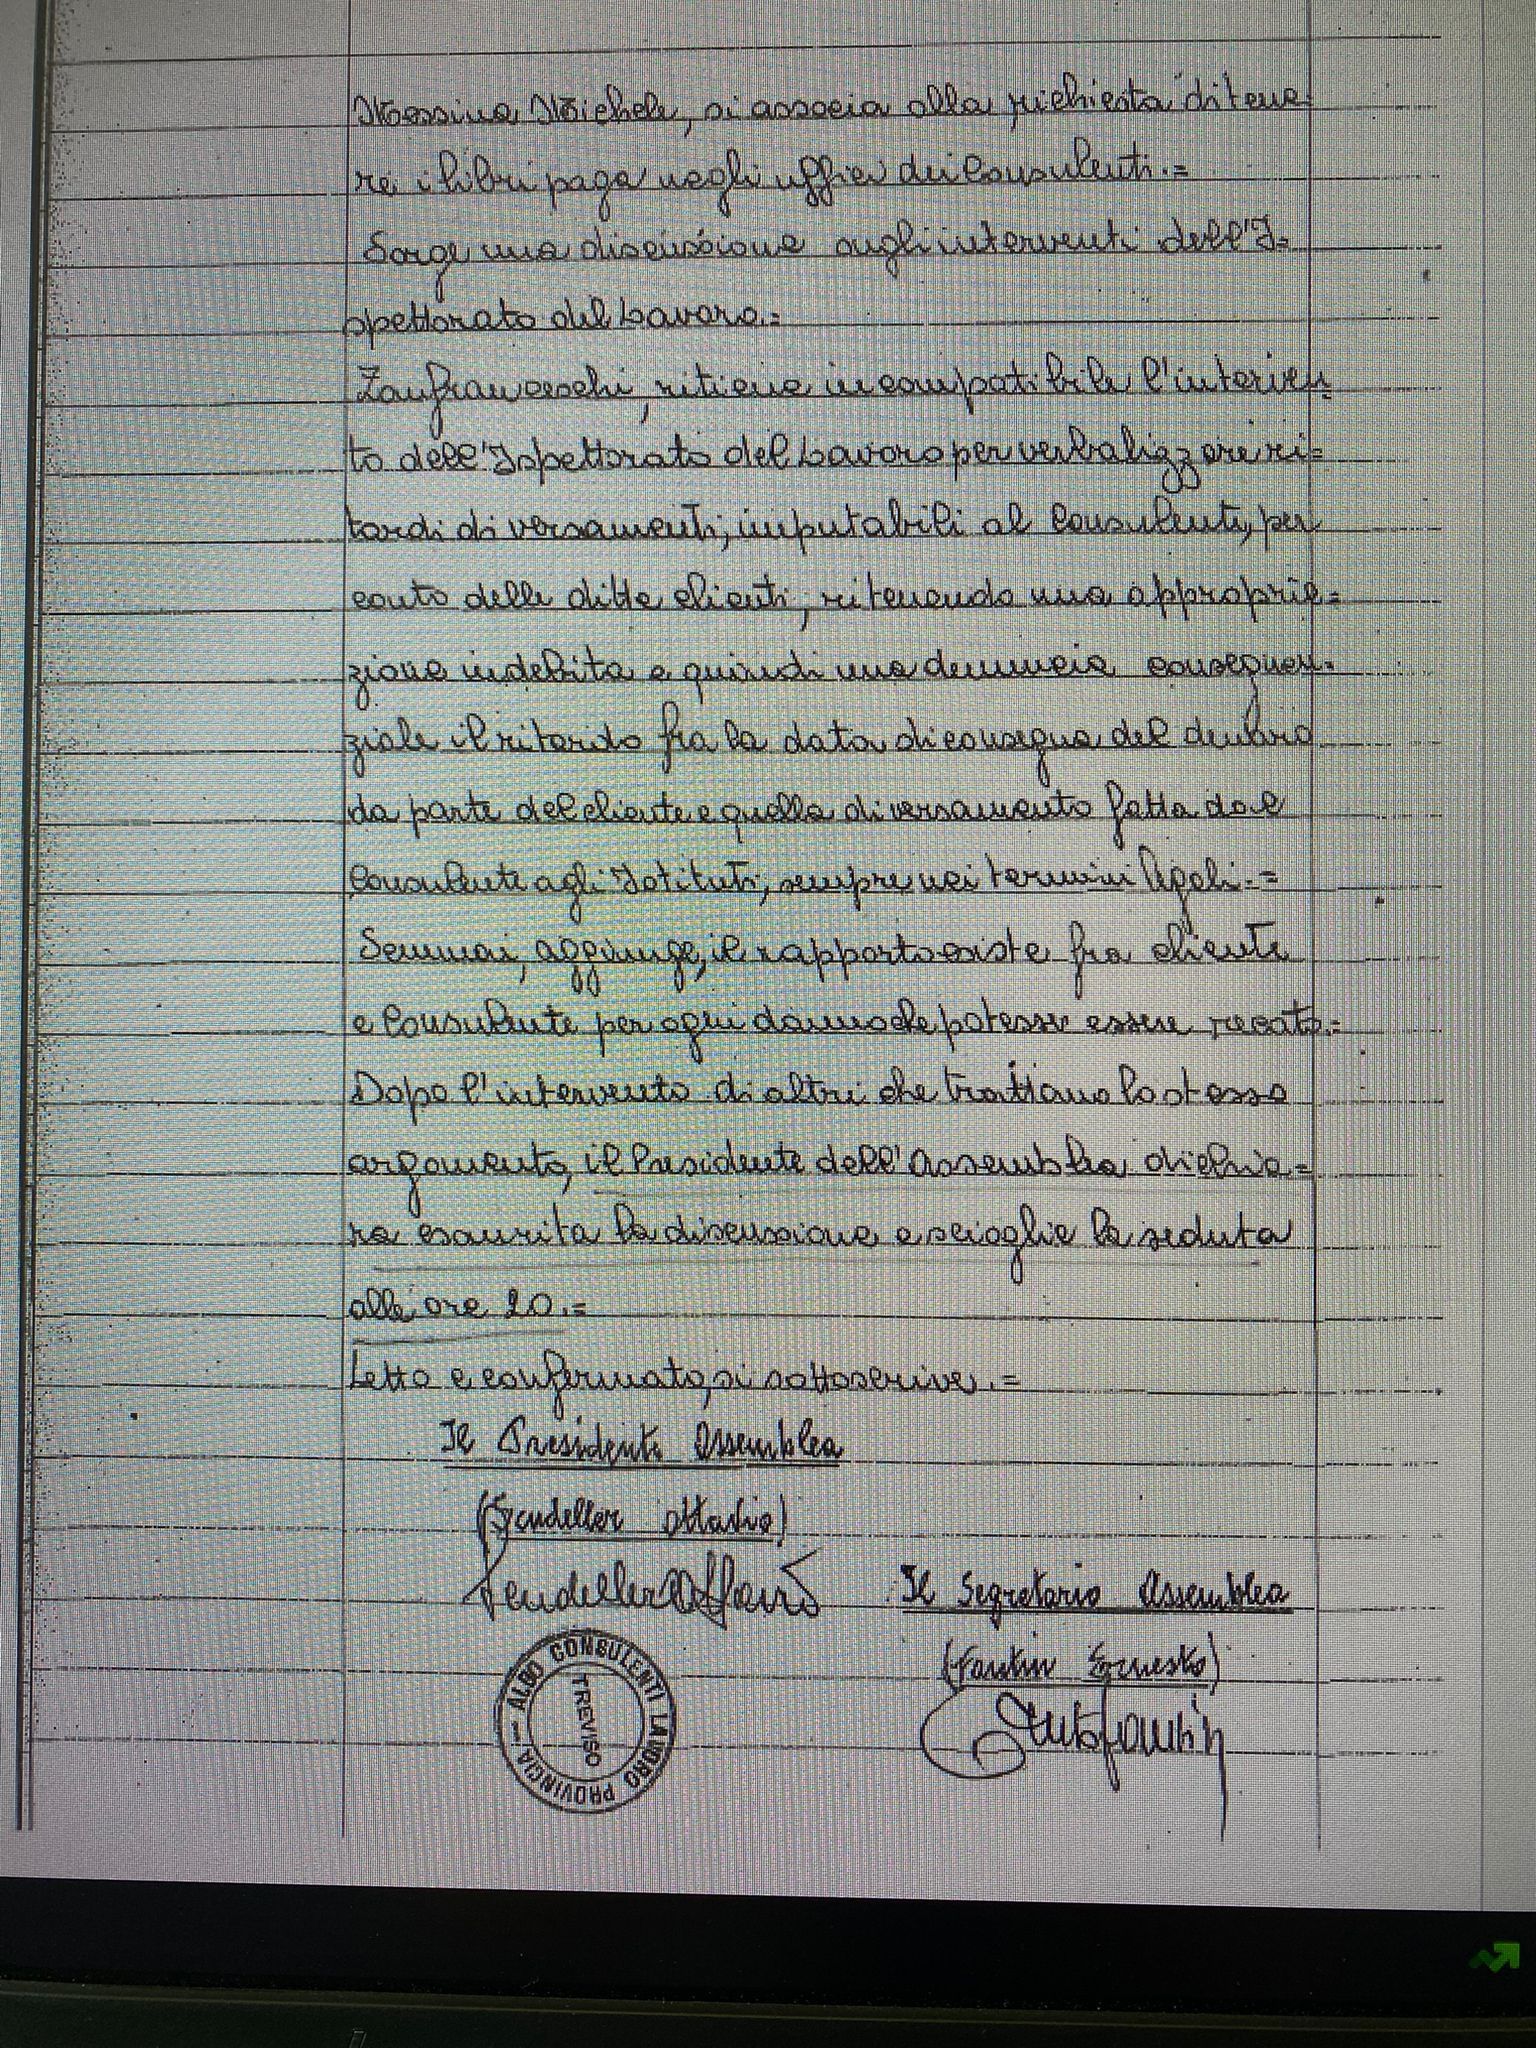 Messina Michele, si associa alla richiesta di tene
re i libri paga negli uffici dei Consulenti.=
Sorge una discussione sugli interventi dell'I=
spettorato del Lavoro.=
Zanfranceschi, ritiene incompatibile l'interven=
to dell'Ispettorato del Lavoro per verbalizzare ri=
tardi di versamenti, imputabili al Consulente, per
conto delle ditte clienti, ritenendo una appropria=
zione indebita e quindi una denuncia consequen=
ziale il ritardo fra la data di consegna del denaro
da parte del cliente e quella di versamento fatta dal
Consulente agli Istituti, sempre nei termini legali.=
Semmai, aggiunge, il rapporto esiste fra cliente
e Consulente per ogni danno che potesse essere recato.=
Dopo l'intervento di altri che trattano lo stesso
argomento, il Presidente dell'Assemblea dichia=
ra esaurita la discussione e scioglie la seduta
alle ore 20.=
Letto e confermato, si sottoscrive.=
Il Presidente Assemblea
(Scudeller Ottavio)
Scudeller Ottavio
Il Segretario Assemblea
(Fantin Ernesto)
ALBO CONSULENTI LAVORO PROVINCIA
TREVISO